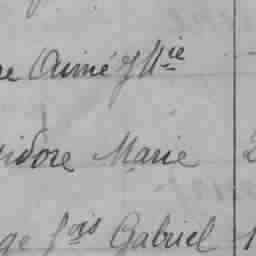 re Aimé J M.ie
idore Marie 2
ge f.ois Gabriel 1